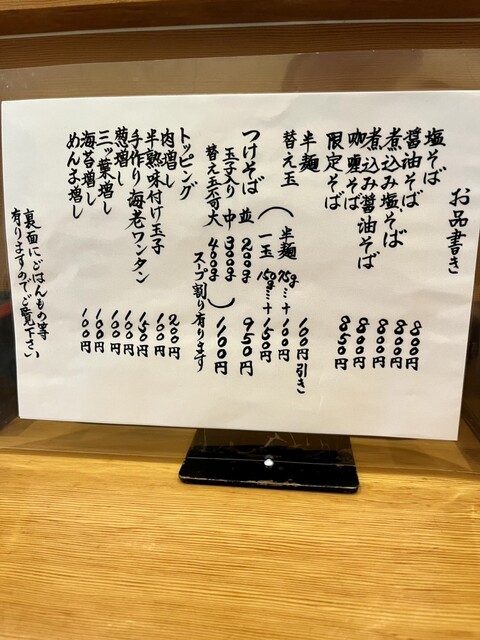 お品書き
塩そば 800円
醤油そば 800円
煮込み塩そば 800円
煮込み醤油そば 800円
咖喱そば 850円
限定そば
半麺 100円引き
替え玉（半麺 75g…+100円
一玉 150g…+150円
つけそば 並 200g 950円
玉子入り 中 300g
替え玉不可 大 400g） 1100円
スープ割り有ります
トッピング
肉増し 200円
半熟味付け玉子 100円
手作り海老ワンタン 150円
葱増し 100円
三ッ葉増し 100円
海苔増し 100円
めんま増し 100円
裏面にごはんもの等
有りますのでご覧下さい